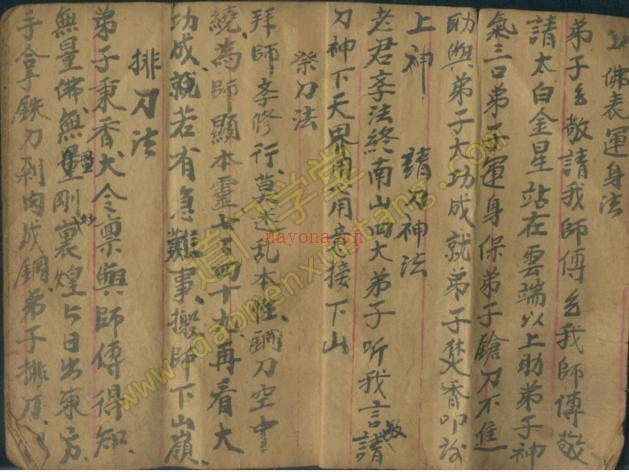 佛表運身法
弟子々敬請我師傅々我師傅敬
請太白金星站在雲端以上助弟子神
氣三口弟子運身保弟子鎗刀不進
助與弟子大功成就弟子焚香叩謝
上神 請刀神法
老君李法終南山四大弟子听我言請敬
刀神下天界用心用意接下山
祭刀法
拜師李修行莫来乱本性鋼刀空中
繞為師顯本靈七々四十九再看大
功成就若有急難事搬師下山嶺
排刀法
弟子秉香火令禀與師傅得知
無量佛無量剛裏煌々日出東方
手拿鉄刀剁肉成鋼弟子排刀
道门学堂
nayona.cn
www.daomenxuetang.com